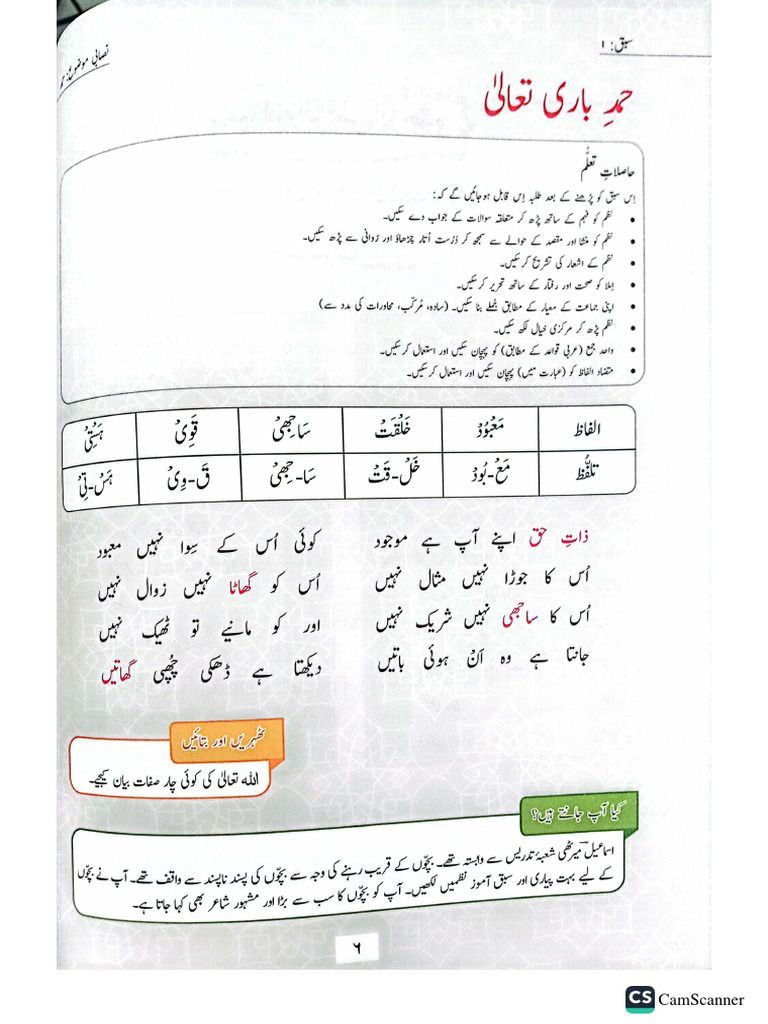 سبق: ۱
نصابی موضوع: حمد
حمدِ باری تعالیٰ
حاصلاتِ تعلّم
اِس سبق کو پڑھنے کے بعد طلبہ اِس قابل ہوجائیں گے کہ:
• نظم کو فہم کے ساتھ پڑھ کر متعلقہ سوالات کے جواب دے سکیں۔
• نظم کو منشا اور مقصد کے حوالے سے سمجھ کر دُرست اُتار چڑھاؤ اور رَوانی سے پڑھ سکیں۔
• نظم کے اشعار کی تشریح کرسکیں۔
• اِملا کو صحت اور رفتار کے ساتھ تحریر کرسکیں۔
• اپنی جماعت کے معیار کے مطابق جُملے بنا سکیں۔ (سادہ، مُرکّب، محاورات کی مدد سے)
• نظم پڑھ کر مرکزی خیال لکھ سکیں۔
• واحد جمع (عربی قواعد کے مطابق) کو پہچان سکیں اور استعمال کرسکیں۔
• متضاد الفاظ کو (عبارت میں) پہچان سکیں اور استعمال کرسکیں۔
الفاظ مَعْبُوْدْ خَلْقَتْ سَاجِھِیْ قَوِیْ ہَسْتِیْ
تلفّظ مَعْ-بُوْدْ خَلْ-قَتْ سَا-جِھِیْ قَ-وِیْ ہَسْ-تِیْ
ذاتِ حق اپنے آپ ہے موجود کوئی اُس کے سِوا نہیں معبود
اُس کا جوڑا نہیں مثال نہیں اُس کو گھاٹا نہیں زوال نہیں
اُس کا ساجھی نہیں شریک نہیں اور کو مانیے تو ٹھیک نہیں
جانتا ہے وہ اَنْ ہوئی باتیں دیکھتا ہے ڈھکی چُھپی گھاتیں
ٹھہریں اور بتائیں
اللہ تعالیٰ کی کوئی چار صفات بیان کیجیے۔
کیا آپ جانتے ہیں؟
اسماعیل میرٹھی شعبۂ تدریس سے وابستہ تھے۔ بچّوں کے قریب رہنے کی وجہ سے بچّوں کی پسند ناپسند سے واقف تھے۔ آپ نے بچّوں
کے لیے بہت پیاری اور سبق آموز نظمیں لکھیں۔ آپ کو بچّوں کا سب سے بڑا اور مشہور شاعر بھی کہا جاتا ہے۔
۶
CS CamScanner